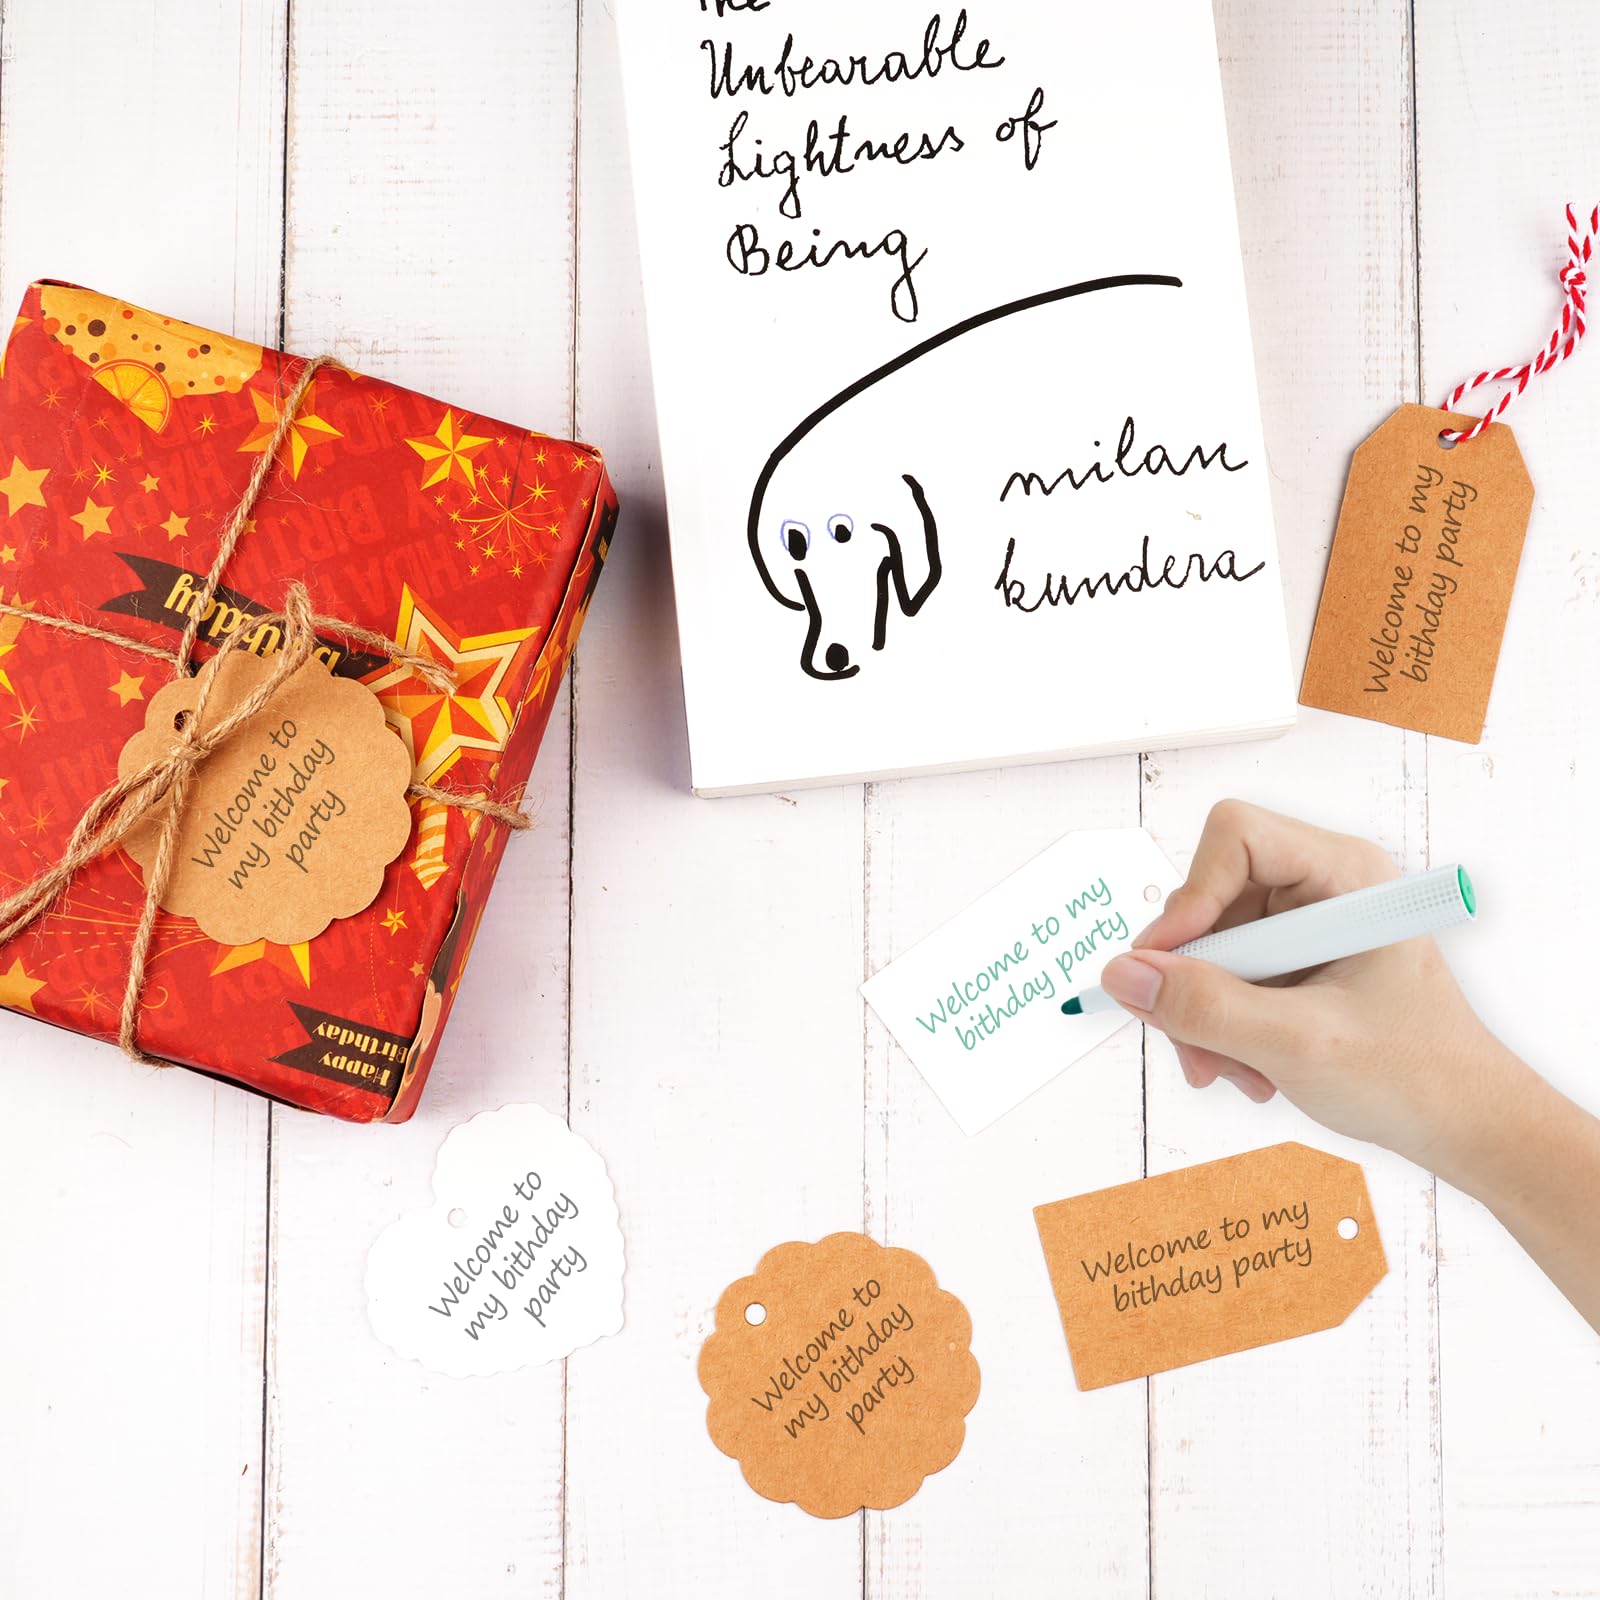 The
Unbearable
Lightness of
Being
milan
kundera
Welcome to my
bithday party
Birthday
Welcome to
my bithday
party
Happy
Birthday
Welcome to my
bithday party
Welcome to
my bithday
party
Welcome to my
bithday party
Welcome to
my bithday
party